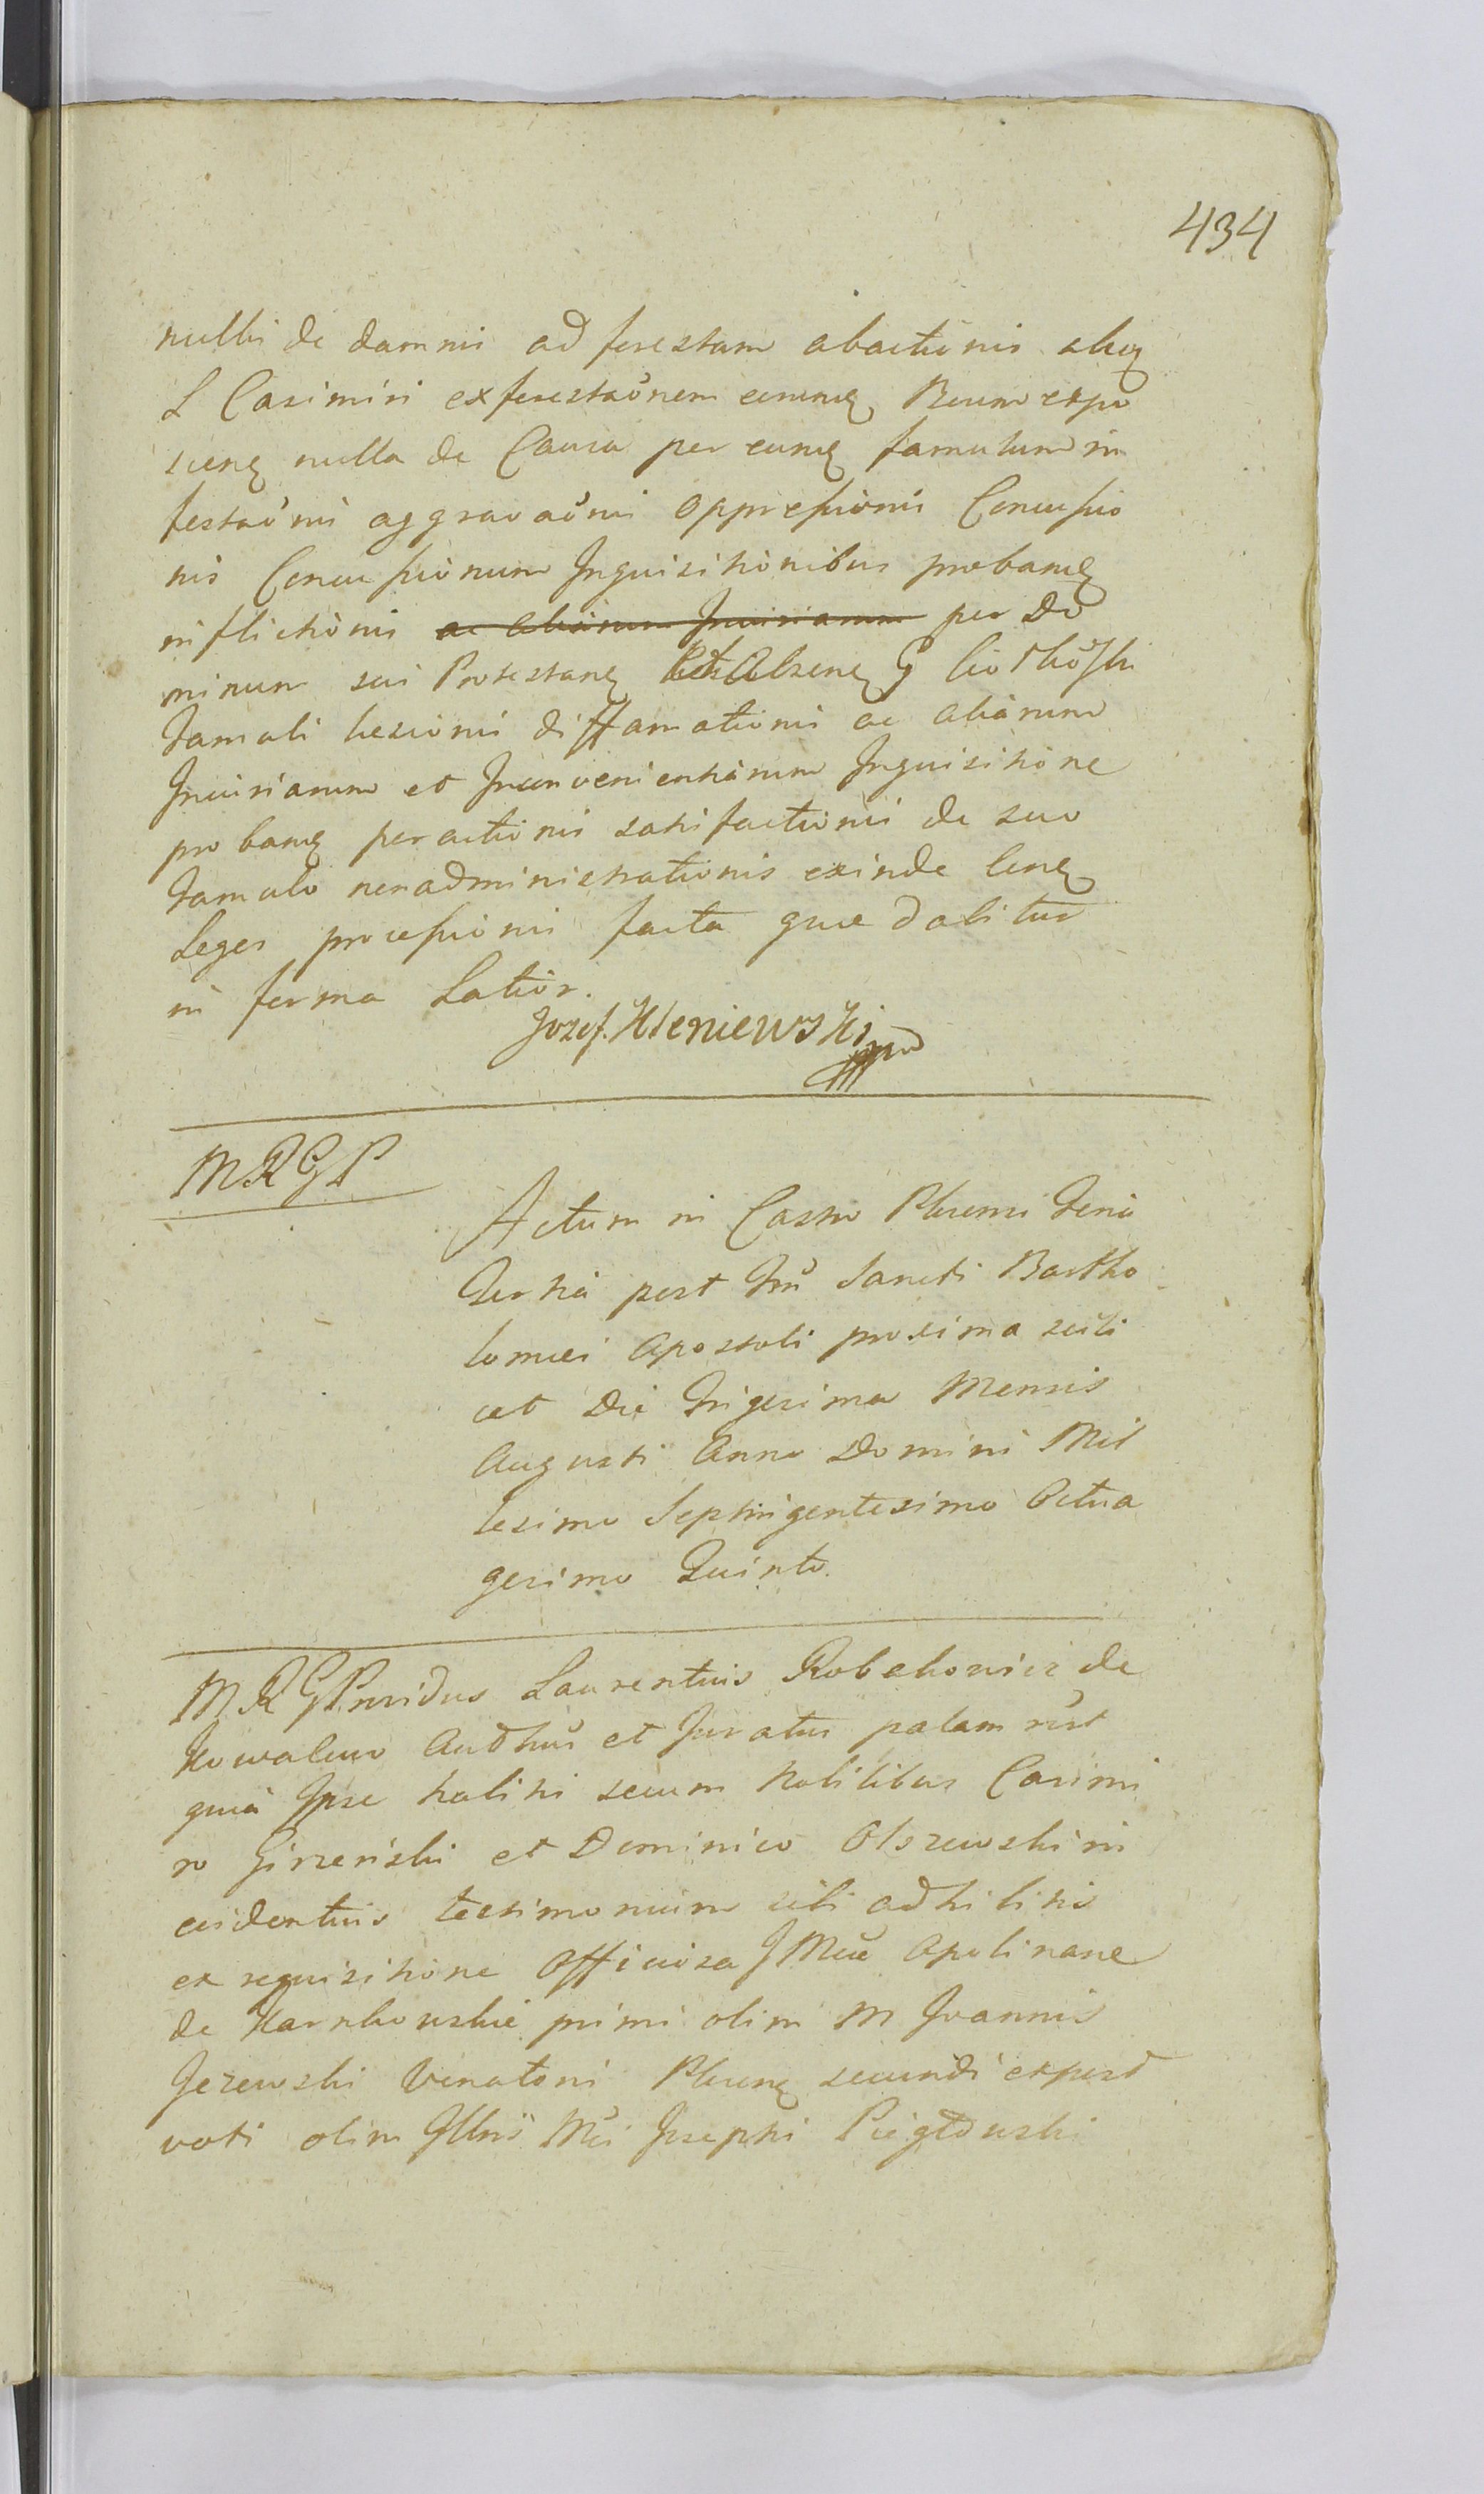 434
nullis de damnis ad forestam abactionis aliaq
L Casimiri exforestaonem eamq Boum expo
scenq nulla de Causa per eunq famulum in
festaonis aggravaonis oppressionis Concussio
nis Concussionum Inquisitionibus probanq
inflictionis ac aliarum Iniuriarum per Do
minum sui Protestanq Absenq G
Famali lesionis diffamationis ac aliarum
Iniuriarum et Inconvenientiarum Inquisitione
probanq peractionis satisfactionis de suo
Famulo nonadministrationis exinde Cenq
Leges processionis facta quae dabitur
in forma Latior.
Jozef. Kleniewski mp
MRGP
Actum in Castro Plocensi Feria
Tertia post Fm Sancti Bartho
lomaei Apostoli proxima scili
cet Die Trigesima Mensis
Augusti Anno Domini Mil
lesimo Septingentesimo Octua
gesimo Quinto.
MRGProvidus Laurentius Robakowicz de
Kowalewo Authus et Juratus palam rect
quia Ipse habitis secum Nobilibus Casimi
ro Girzeński et Dominico Olszewski in
evidentius testimonium sibi adhibitis
ex requisitione Officiosa J Mcae Apolinarae
de Karnkowskie primi olim M Joannis
Jezewski Venatoris Plocenq secundi expost
voti olim Illris Mci Josephi Piegłowski